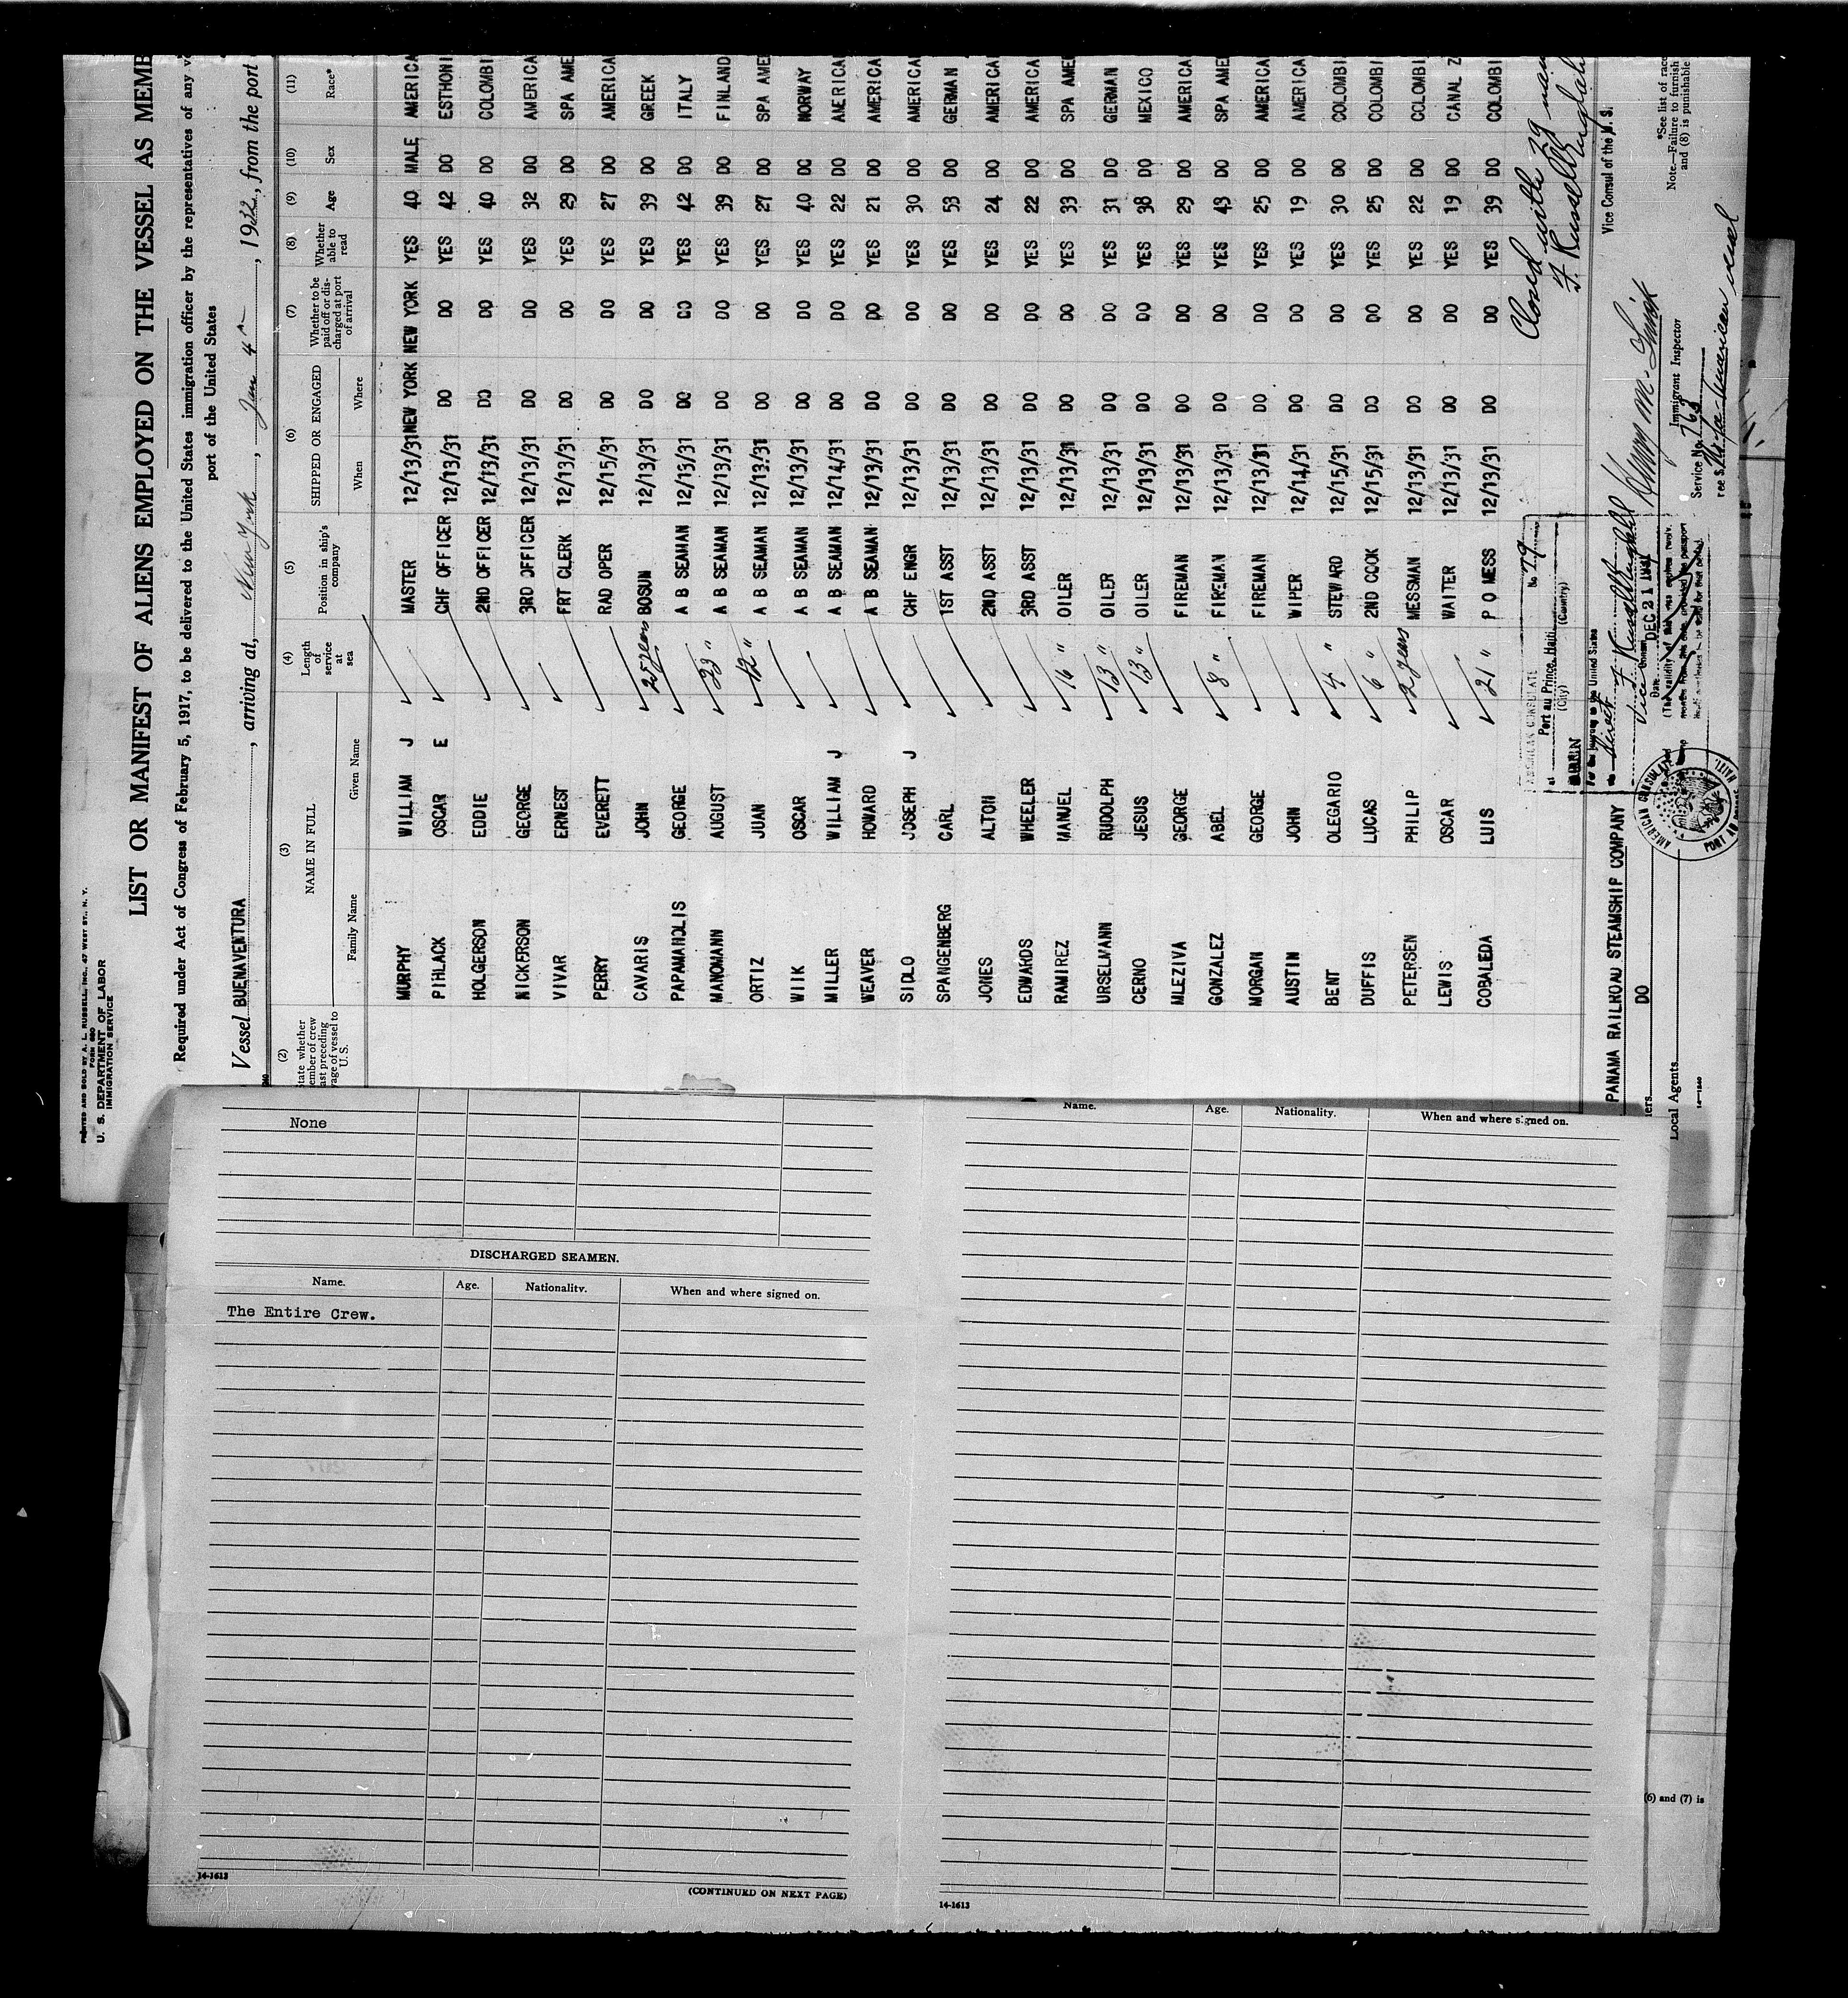 PRINTED AND SOLD BY A. L. RUSSELL, INC., 47 WEST ST., N. Y.
FORM 680
U. S. DEPARTMENT OF LABOR
IMMIGRATION SERVICE
LIST OR MANIFEST OF ALIENS EMPLOYED ON THE VESSEL AS MEMB
Required under Act of Congress of February 5, 1917, to be delivered to the United States immigration officer by the representatives of any
port of the United States
Vessel BUENAVENTURA, arriving at New York, Jan 4, 1932, from the port
(2) (3) (4) (5) (6) (7) (8) (9) (10) (11)
State whether member of crew last preceding voyage of vessel to U. S. NAME IN FULL Length of service at sea Position in ship's company SHIPPED OR ENGAGED Whether to be paid off or discharged at port of arrival Whether able to read Age Sex Race*
Family Name Given Name When Where
MURPHY WILLIAM J MASTER 12/13/31 NEW YORK NEW YORK YES 40 MALE AMERICA
PIHLACK OSCAR E CHF OFFICER 12/13/31 DO DO YES 42 DO ESTHONI
HOLGERSON EDDIE 2ND OFFICER 12/13/31 DO DO YES 40 DO COLOMBI
NICKERSON GEORGE 3RD OFFICER 12/13/31 DO DO YES 32 DO AMERICA
VIVAR ERNEST FRT CLERK 12/13/31 DO DO YES 29 DO SPA AME
PERRY EVERETT RAD OPER 12/15/31 DO DO YES 27 DO AMERICA
CAVARIS JOHN 25 years BOSUN 12/13/31 DO DO YES 39 DO GREEK
PAPAMANOLIS GEORGE A B SEAMAN 12/13/31 DO DO YES 42 DO ITALY
MANOMANN AUGUST 23 " A B SEAMAN 12/13/31 DO DO YES 39 DO FINLAND
ORTIZ JUAN 12 " A B SEAMAN 12/13/31 DO DO YES 27 DO SPA AME
WIK OSCAR A B SEAMAN 12/13/31 DO DO YES 40 DO NORWAY
MILLER WILLIAM J A B SEAMAN 12/14/31 DO DO YES 22 DO AMERICA
WEAVER HOWARD A B SEAMAN 12/13/31 DO DO YES 21 DO AMERICA
SIDLO JOSEPH J CHF ENGR 12/13/31 DO DO YES 30 DO AMERICA
SPANGENBERG CARL 1ST ASST 12/13/31 DO DO YES 53 DO GERMAN
JONES ALTON 2ND ASST 12/13/31 DO DO YES 24 DO AMERICA
EDWARDS WHEELER 3RD ASST 12/13/31 DO DO YES 22 DO AMERICA
RAMIREZ MANUEL 16 " OILER 12/13/31 DO DO YES 33 DO SPA AME
URSELMANN RUDOLPH 13 " OILER 12/13/31 DO DO YES 31 DO GERMAN
CERNO JESUS 13 " OILER 12/13/31 DO DO YES 38 DO MEXICO
MLEZIVA GEORGE FIREMAN 12/13/31 DO DO YES 29 DO AMERICA
GONZALEZ ABEL 8 " FIREMAN 12/13/31 DO DO YES 43 DO SPA AME
MORGAN GEORGE FIREMAN 12/13/31 DO DO YES 25 DO AMERICA
AUSTIN JOHN WIPER 12/14/31 DO DO YES 19 DO AMERICA
BENT OLEGARIO 4 " STEWARD 12/15/31 DO DO YES 30 DO COLOMBI
DUFFIS LUCAS 6 " 2ND COOK 12/15/31 DO DO YES 25 DO COLOMBI
PETERSEN PHILIP 2 years MESSMAN 12/13/31 DO DO YES 22 DO COLOMBI
LEWIS OSCAR WAITER 12/13/31 DO DO YES 19 DO CANAL Z
COBALEDA LUIS 21 " P O MESS 12/13/31 DO DO YES 39 DO COLOMBI
Closed with 29
AMERICAN CONSULATE No 79
at Port au Prince, Haiti
(City) (Country)
For the journey to the United States
Direct
Vice Consul
Date DEC 21 1931
Vice Consul of the U. S.
AMERICAN CONSULATE
PORT AU PRINCE, HAITI
PANAMA RAILROAD STEAMSHIP COMPANY
DO
Local Agents
14-1240
Henry M. Smith
Immigrant Inspector
Service No. 763
American vessel
*See list of race
Note.—Failure to furnish
and (8) is punishable
(6) and (7) is
None
DISCHARGED SEAMEN.
Name. Age. Nationality. When and where signed on.
The Entire Crew.
14-1613
(CONTINUED ON NEXT PAGE)
Name. Age. Nationality. When and where signed on.
14-1613